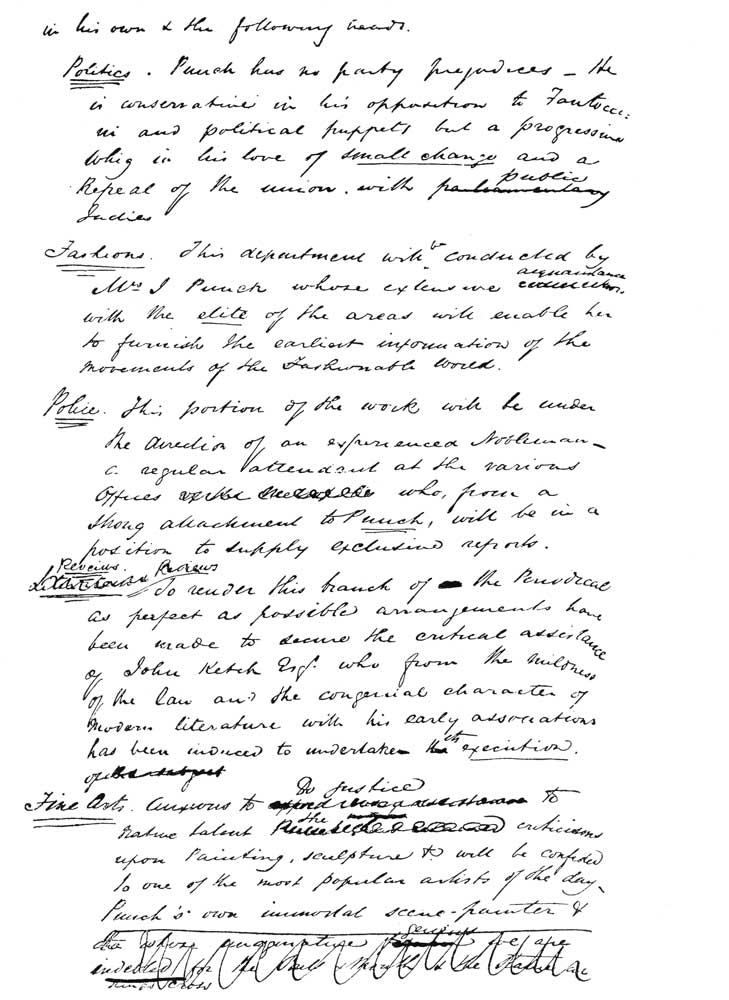 in his own & the following heads.
Politics. Punch has no party prejudices – He
is conservative in his opposition to Fantocci-
ni and political puppets but a progressive
Whig in his love of small change and a
public
Repeal of the union. with parliamentary
Judies
Fashions. This department will be conducted by
acquaintance
Mrs J Punch whose extensive connection
with the elite of the areas will enable her
to furnish the earliest information of the
movements of the Fashionable World.
Police. This portion of the work will be under
the direction of an experienced Nobleman –
a regular attendant at the various
offices who, from a
strong attachment to Punch, will be in a
position to supply exclusive reports.
Reviews. Reviews
To render this branch of the Periodical
as perfect as possible arrangements have
been made to secure the critical assistance
of John Ketch Esqr. who from the mildness
of the law and the congenial character of
modern literature with his early associations
has been induced to undertake its execution.
of the subject
Do justice
Fine Arts. Anxious to to
native talent the criticisms
upon Painting, sculpture &c will be confided
to one of the most popular artists of the day –
Punch's own immortal scene-painter &
genius
to whose we are
indebted for the
Kings Cross